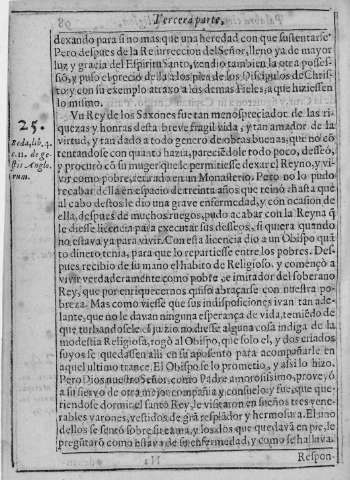 Tercera parte,
dexando para si no mas que una heredad con que sustentarse.
Pero despues de la Resurreccion del Señor, lleno ya de mayor
luz y gracia del Espiritu Santo, vendio tambien la otra posses-
sió, y puso el precio della à los pies de los Discipulos de Chris-
to y con su exemplo atraxo a los demas Fieles, a que hiziessen
lo mismo.
25.
Beda, lib. 4.
c. 11. de ge-
stis Anglo-
rum.
Vn Rey de los Saxones fue tan menospreciador de las ri-
quezas y honras desta breve fragil vida, y tan amador de la
virtud, y tan dado a todo genero de obras buenas, que no cō-
tentandose con quanto hazia, pareciēdole todo poco, desseó,
y procurò cō su muger que le permitiesse dexar el Reyno, y vi-
vir como pobre, retirado en un Monasterio. Pero no lo pudo
recabar della en espacio de treinta años que reinò, hasta que
al cabo destos le dio una grave enfermedad, y con ocasion de
ella, despues de muchos ruegos, pudo acabar con la Reyna q̄
le diesse licencia para executar sus desseos, si quiera quando
no estava ya para vivir. Con esta licencia dio a un Obispo quā
to dinero tenia, para que lo repartiesse entre los pobres. Des-
pues recibio de su mano el habito de Religioso, y começò a
vivir verdaderamēte como pobre, e imitador del soberano
Rey, que por enriquecernos quiso abraçarse con nuestra po-
breza. Mas como viesse que sus indisposiciones ivan tan ade-
lante, que no le davan ninguna esperança de vida, temiēdo de
que turbandosele el juizio no diesse alguna cosa indigna de la
modestia Religiosa, rogò al Obispo, que solo el, y dos criados
suyos se quedassen alli en su aposento para acompañarle en
aquel ultimo trance. El Obispo se lo prometio, y assi lo hizo.
Pero Dios nuestro Señor, como Padre amorosissimo, proveyó
a su siervo de otra mejor compañia y consuelo: y fue, que que-
riendose dormir el santo Rey, le visitaron en sueños tres vene-
rables varones, vestidos de grā resplādor y hermosura. El uno
dellos se sentò sobre su cama, y los dos que quedavā en pie, le
pregūtarō como estava de su enfermedad, y como se hallava.
Respon-